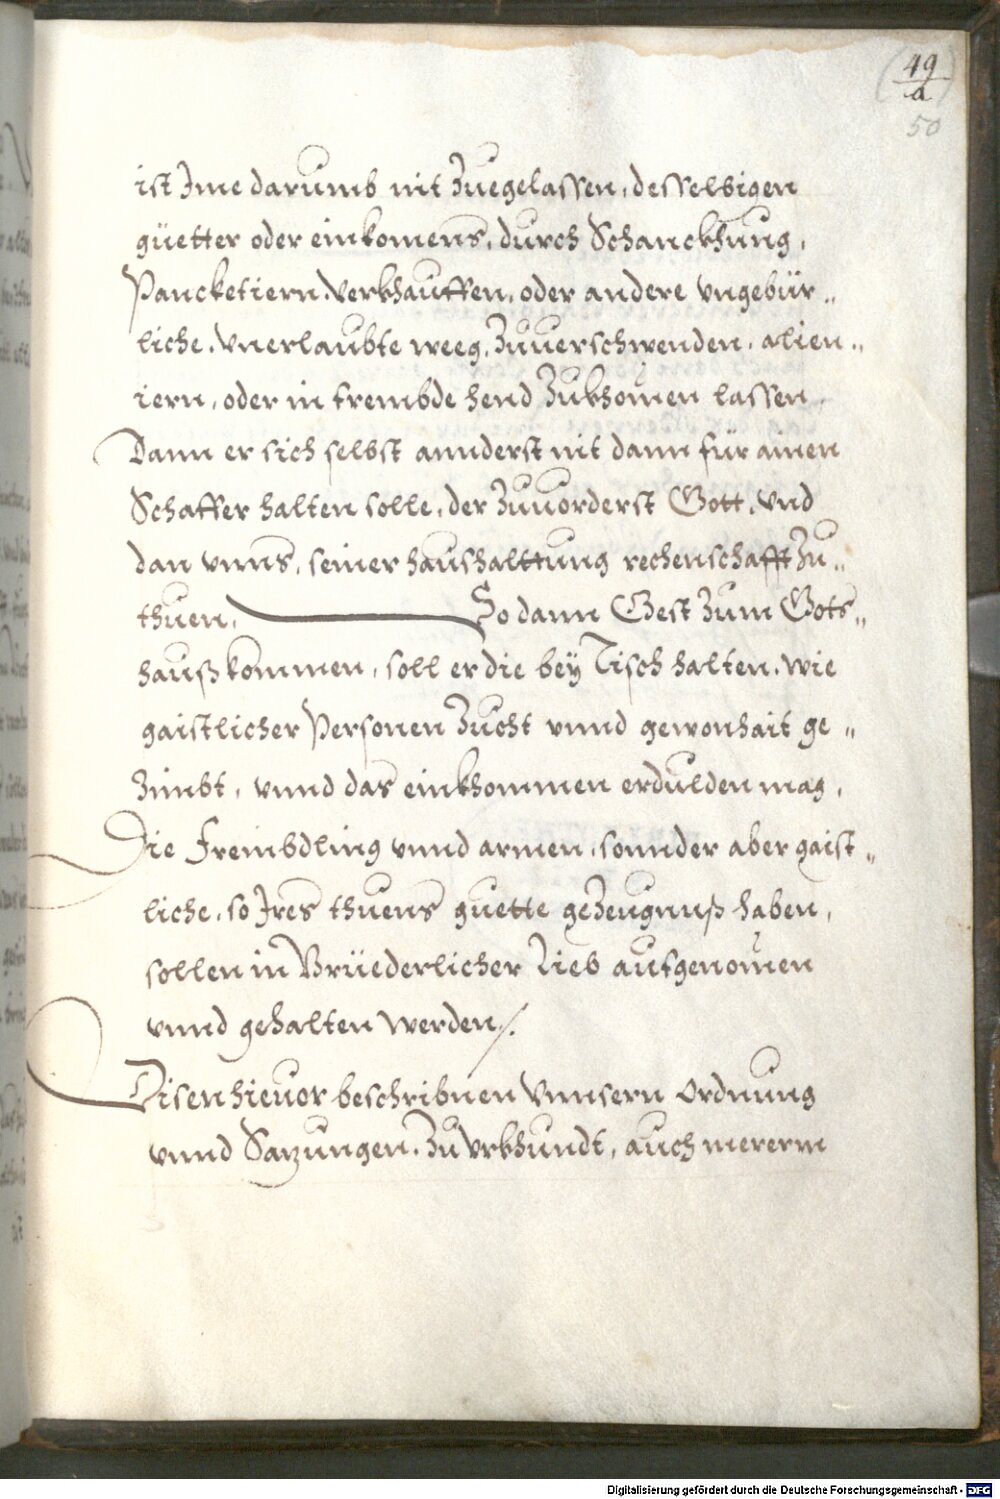 49
a
50
ist Jme darumb nit Zuegelassen, desselbigen
güetter oder einkomens, durch Schanckhung,
Pancketiern, Verkhauffen, oder andere vngebür„
liche, vnerlaubte weeg, Zuuerschwenden, alien„
iern, oder in frembde hend Zukhom̃en lassen,
Dann er sich selbst annderst nit dann für ainen
Schaffer halten solle, der Zuuorderst Gott, vnd
dan vnns, seiner haushalttung rechenschafft Zu„
thuen, So dann Gest Zum Gots„
hauß kommen, soll er die bey Tisch halten, wie
gaistlicher Personen Zucht vnnd gewonhait ge„
Zimbt, vnnd das einkhommen erdulden mag,
Die Frembdling vnnd armen, sonnder aber gaist„
liche, so Jres thuens guette geZeugnuß haben,
sollen in Brüederlicher Lieb aufgenom̃en
vnnd gehalten werden/.
Disen hieuor beschribnen Vnnsern Ordnung
vnnd Satzungen, Zu Vrkhundt, auch mererm
Digitalisierung gefördert durch die Deutsche Forschungsgemeinschaft - DFG